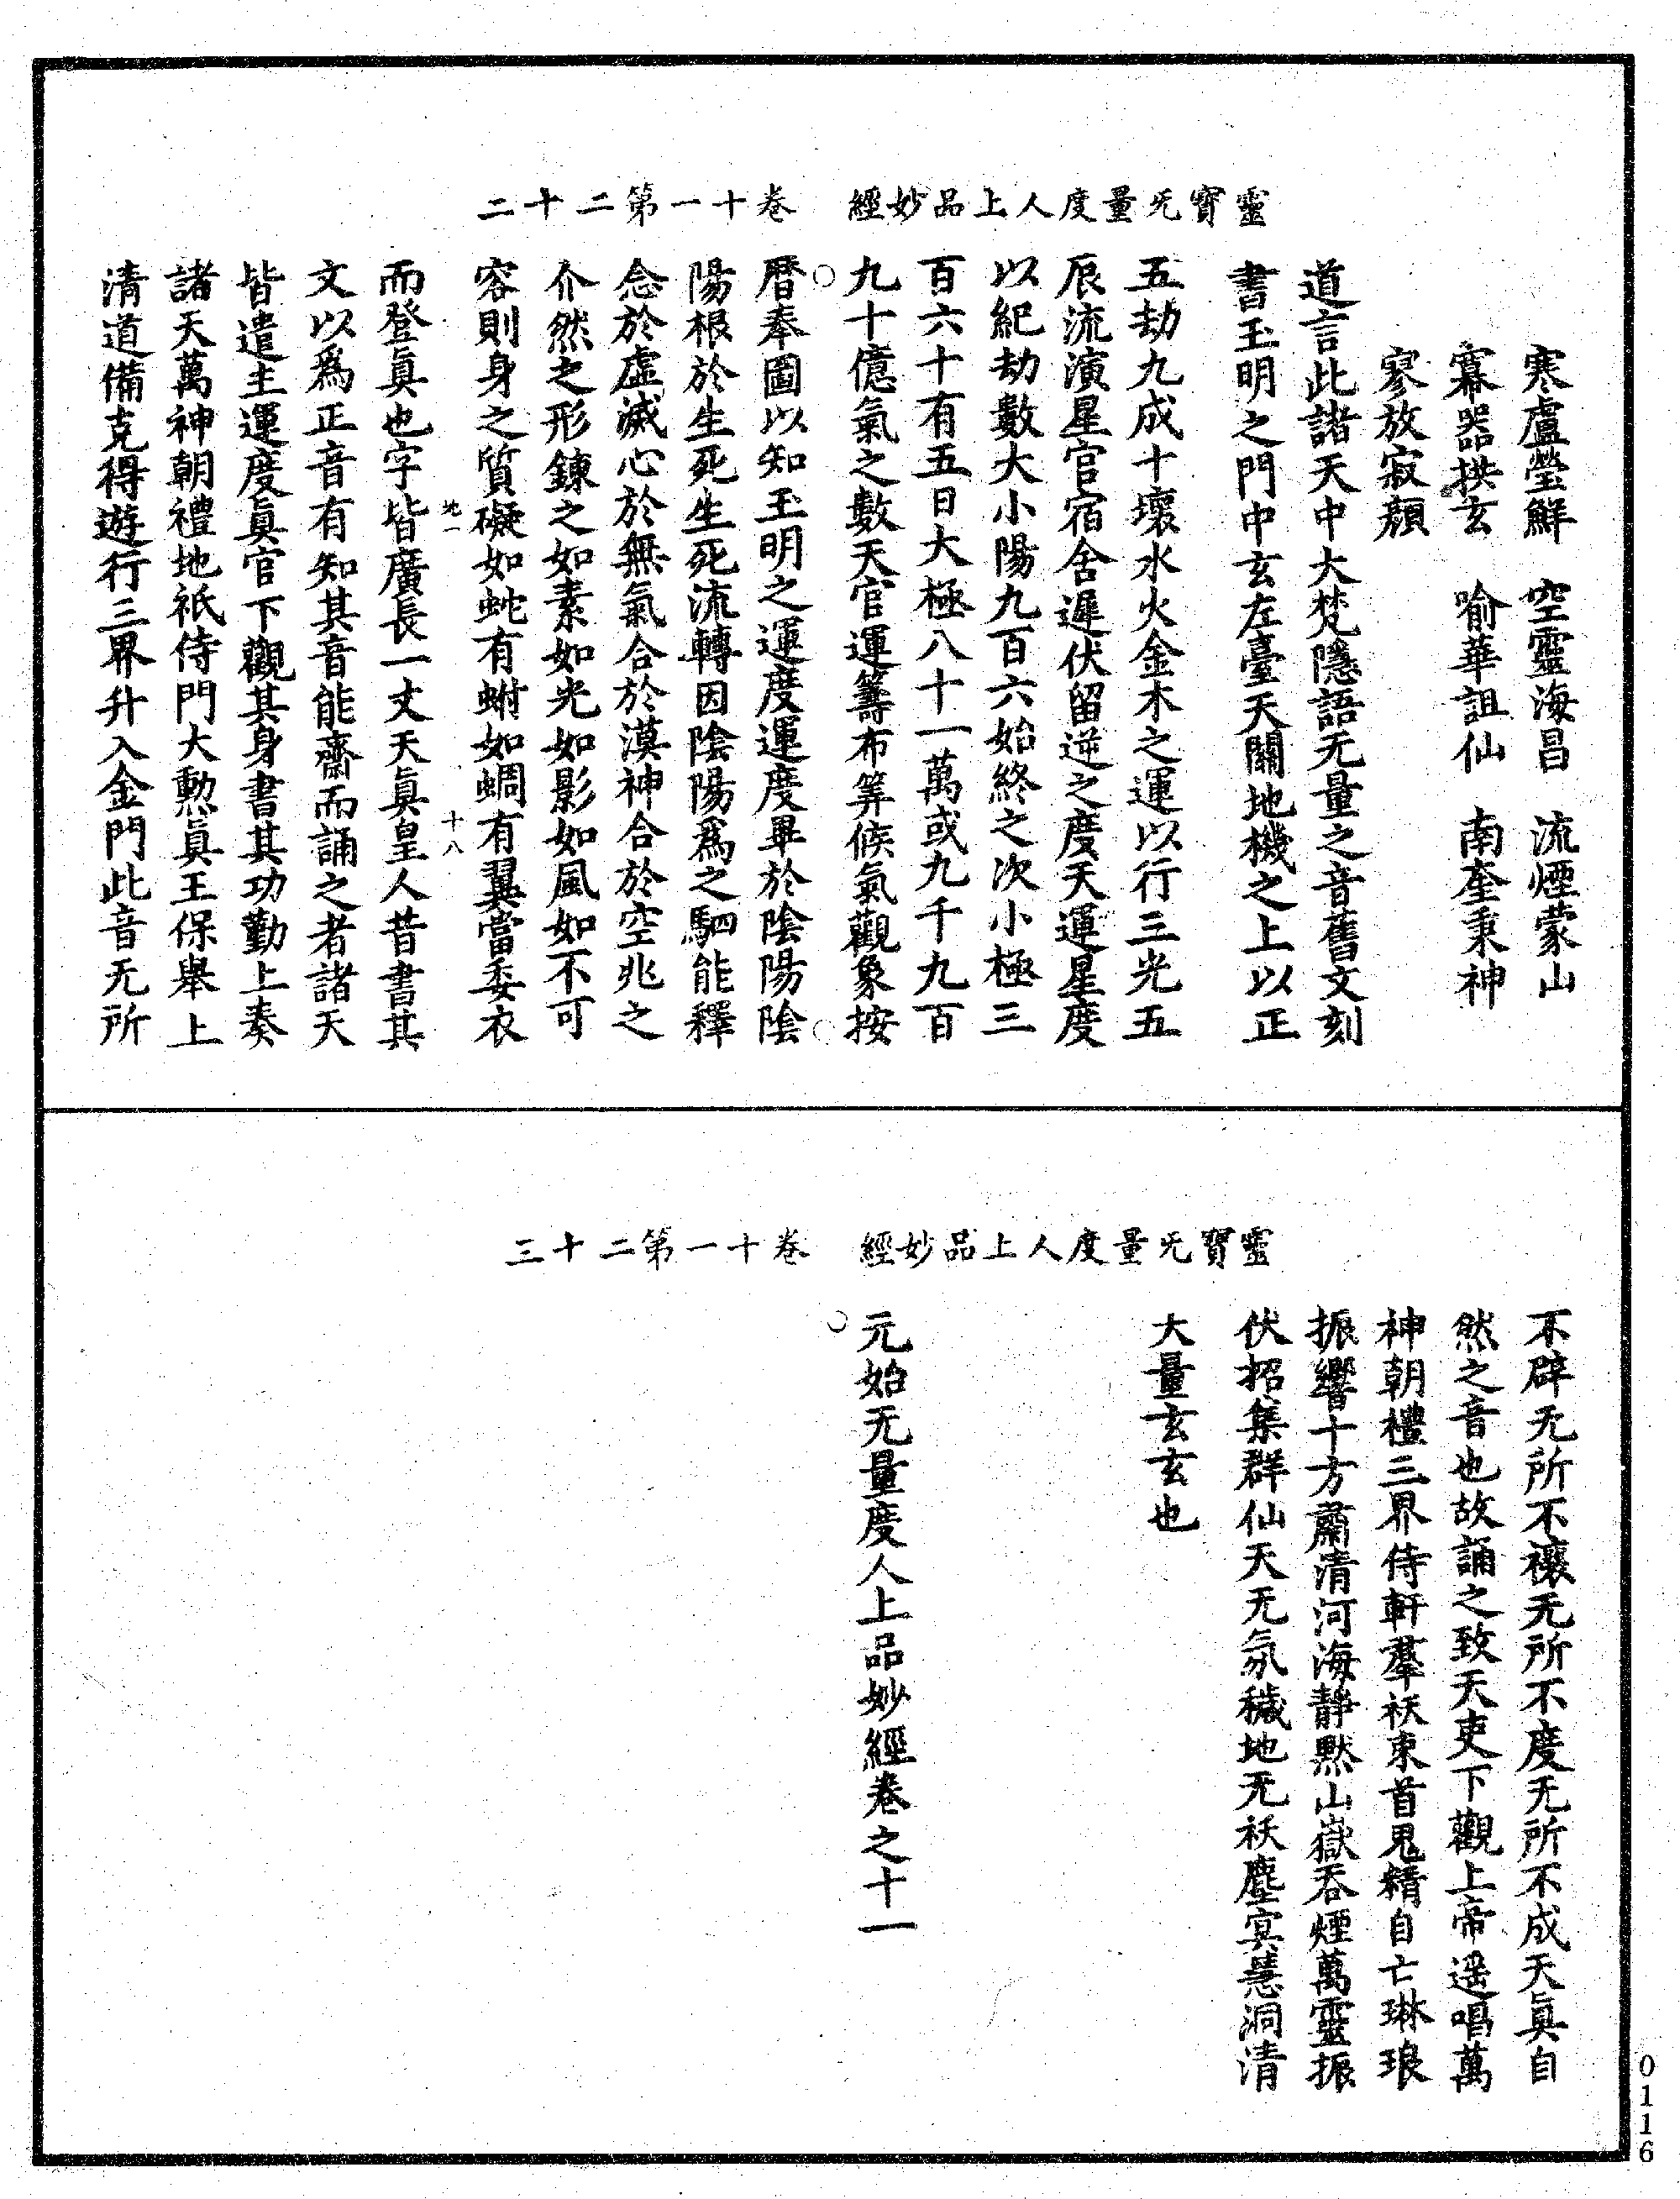 靈寶无量度人上品妙經　卷十一第二十二
寒盧瑩鮮　空靈海昌　流煙蒙山
寡器拱玄　喻華詛仙　南奎秉神
寥放寂顏
道言此諸天中大梵隱語无量之音舊文刻
書玉明之門中玄左臺天關地機之上以正
五劫九成十壞水火金木之運以行三光五
辰流演星官宿舍遲伏留逆之度天運星度
以紀劫數大小陽九百六始終之次小極三
百六十有五日大極八十一萬或九千九百
九十億氣之數天官運籌布筭候氣觀象按
曆奉圖以知玉明之運度運度畢於陰陽陰
陽根於生死生死流轉因陰陽爲之駟能釋
念於虛滅心於無氣合於漠神合於空兆之
介然之形鍊之如素如光如影如風如不可
容則身之質礙如蛇有蚹如蜩有翼當委衣
地一　十八
而登眞也字皆廣長一丈天眞皇人昔書其
文以爲正音有知其音能齋而誦之者諸天
皆遣主運度眞官下觀其身書其功勤上奏
諸天萬神朝禮地祇侍門大勲眞王保舉上
清道備克得遊行三界升入金門此音无所
靈寶无量度人上品妙經　卷十一第二十三
不辟无所不禳无所不度无所不成天眞自
然之音也故誦之致天吏下觀上帝遥唱萬
神朝禮三界侍軒羣祅束首鬼精自亡琳琅
振響十方肅清河海靜默山嶽吞煙萬靈振
伏招集群仙天无氛穢地无祅塵冥慧洞清
大量玄玄也
元始无量度人上品妙經卷之十一
0116